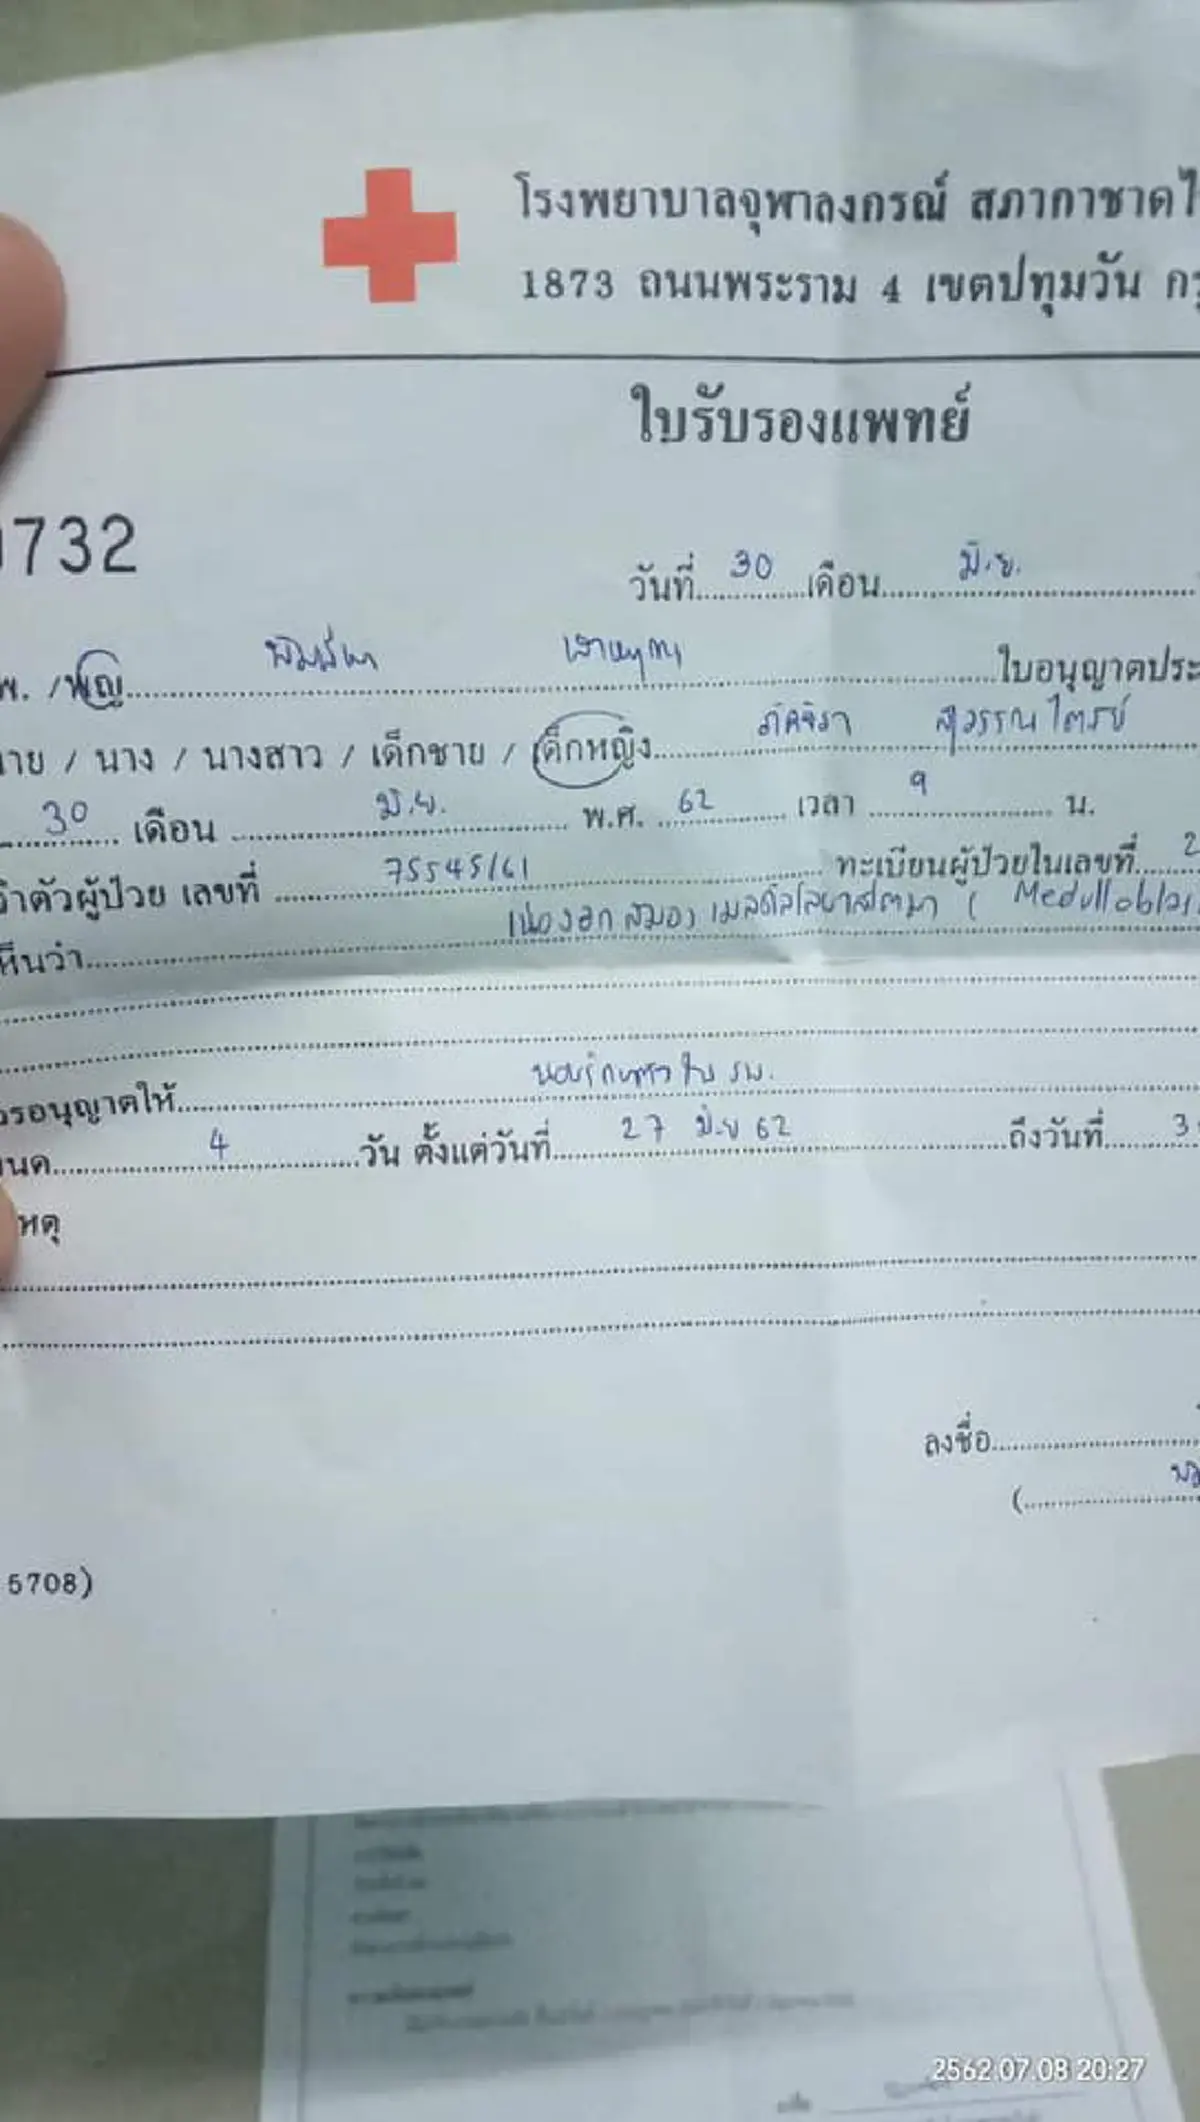 โรงพยาบาลจุฬาลงกรณ์ สภากาชาดไ
1873 ถนนพระราม 4 เขตปทุมวัน กรุ
ใบรับรองแพทย์
732
วันที่ 30 เดือน มิ.ย.
พ. / พญ ใบอนุญาตประ
าย / นาง / นางสาว / เด็กชาย / เด็กหญิง ภัคจิรา สุวรรณไตรย์
30 เดือน มิ.ย. พ.ศ. 62 เวลา 9 น.
ำตัวผู้ป่วย เลขที่ 75545/61 ทะเบียนผู้ป่วยในเลขที่ 2
ห็นว่า เนื้องอกสมอง เมดัลโลบลาสโตมา ( Medullobla
รอนุญาตให้ นอนรักษาตัวใน รพ.
นด 4 วัน ตั้งแต่วันที่ 27 มิ.ย 62 ถึงวันที่ 3
หตุ
ลงชื่อ
(
5708)
2562.07.08 20:27